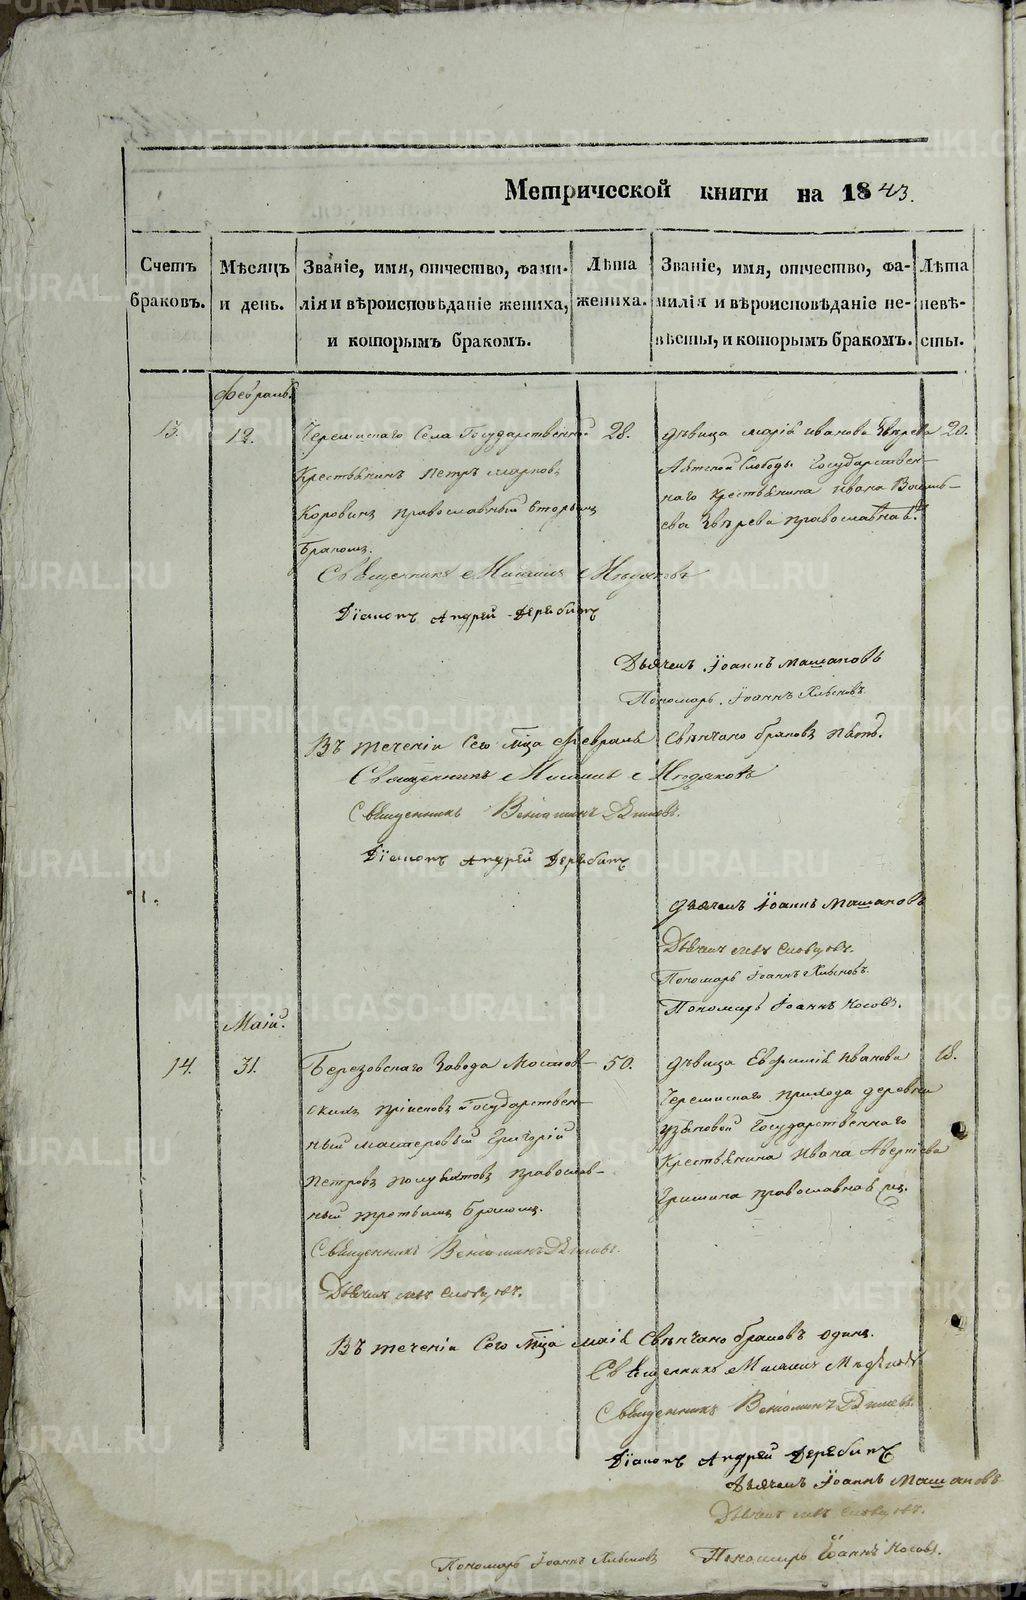 Метрической книги на 1843.
Счетъ браковъ.
Мѣсяцъ и день.
Званіе, имя, отчество, фами-
лія и вѣроисповѣданіе жениха,
и которымъ бракомъ.
Лѣта жениха.
Званіе, имя, отчество, фа-
милія и вѣроисповѣданіе не-
вѣсты, и которымъ бракомъ.
Лѣта невѣ-
сты.
Февраль.
13.
12.
Черемискаго Села Государственный
Крестьянинъ Петръ Марковъ
Коровинъ православный вторымъ
бракомъ.
28.
Дѣвица Марія Иванова Звѣрева
Аятской Слободы Государствен-
наго крестьянина Ивана Василь-
ева Звѣрева православнаѣ.
20.
Священникъ
Діаконъ Андрей Дерябинъ
Дьячекъ Іоаннъ Машановъ
Пономарь Іоаннъ Хлыновъ
Въ теченіи Сего мца Февраля Свѣнчано браковъ пять.
Священникъ
Священникъ Веніаминъ
Діаконъ Андрей Дерябинъ
Дьячекъ Іоаннъ Машановъ
Дьячек Словцовъ.
Пономарь Іоаннъ Хлыновъ.
Пономарь Іоаннъ Носовъ.
Маій.
14.
31.
Березовскаго Завода
скихъ пріисковъ Государствен-
ный мастеровый Григорій
Петровъ Полуяхтовъ православ-
ный третьимъ бракомъ.
50.
Дѣвица Евфимія Иванова
Черемискаго прихода деревни
Узяновой Государственнаго
Крестьянина Ивана
Гришина православнаѣ
18.
Священникъ Веніаминъ
Дьячек Словцовъ.
Въ теченіи Сего мца маія Свѣнчано браковъ одинъ.
Священникъ
Священникъ Веніаминъ
Діаконъ Андрей Дерябинъ
Дьячекъ Іоаннъ Машановъ
Дьячек Словцовъ.
Пономарь Іоаннъ Хлыновъ
Пономарь Іоаннъ Носовъ.
METRIKI.GASO-URAL.RU